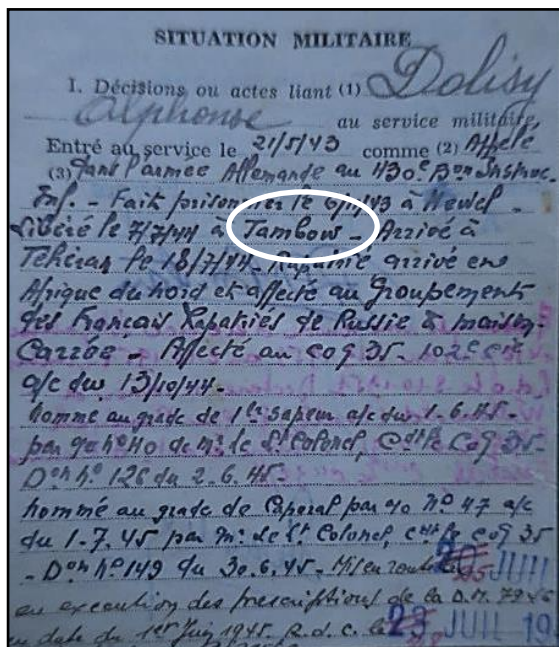 SITUATION MILITAIRE
I. Décisions ou actes liant (1) Dolisy
Alphonse au service militaire.
Entré au service le 21/5/43 comme (2) Appelé
(3) dans l'armée Allemande au 430e Bon Instruc.
Inf. - Fait prisonnier le 6/11/43 à Newel -
Libéré le 7/7/44 à Tambow - Arrivé à
Téhéran le 18/7/44 - Rapatrié arrivé en
Afrique du nord et affecté au Groupement
des Français Rapatriés de Russie à maison-
Carrée - Affecté au C09 35 - 102e Cie
a/c du 13/10/44 -
nommé au grade de 1er sapeur a/c du 1.6.45 -
par no 40 de mr le Lt Colonel, Cdt le C09 35 -
Don no 126 du 2.6.45 -
nommé au grade de Caporal par no 47 a/c
du 1.7.45 par mr le Lt Colonel, cdt le C09 35
- Don no 149 du 30.6.45 - Mis en route le 20 JUIL
en exécution des prescriptions de la D.M. 
en date du 1er Juin 1945. R.d.c. le 23 JUIL 19